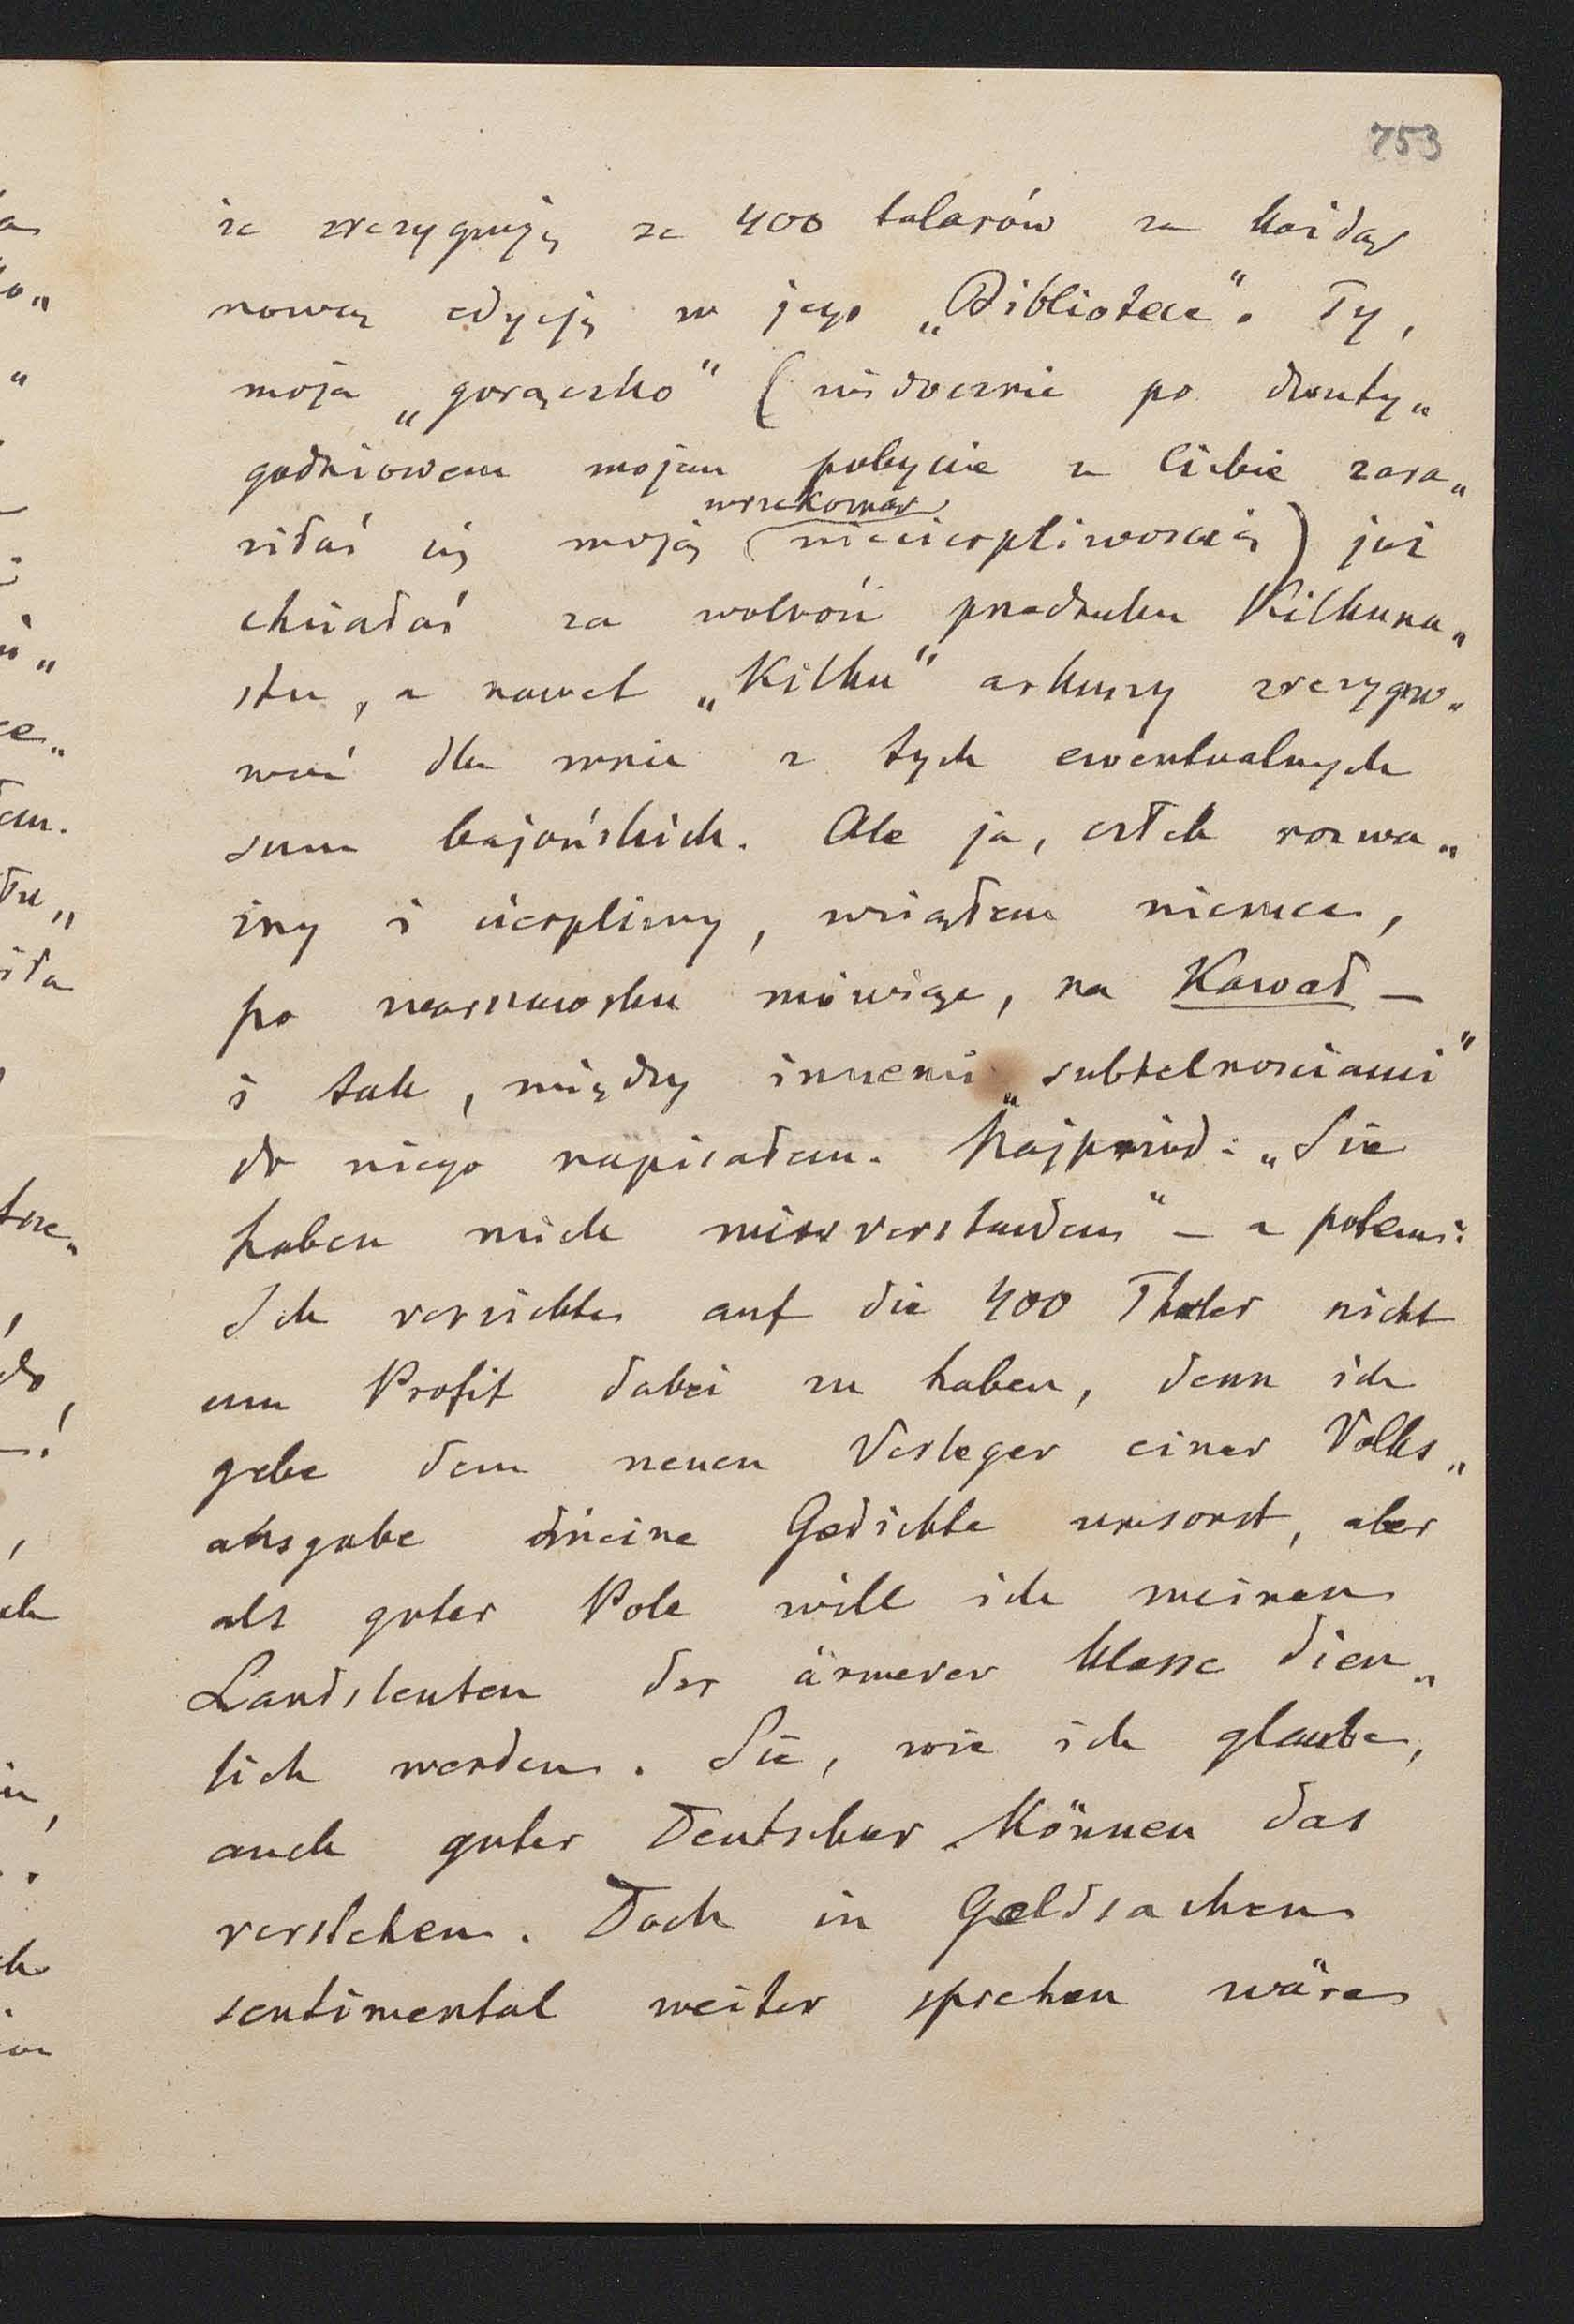 753
że zrezygnuję ze 400 talarów za każdą
nową edycję w jego „Bibliotece". Ty,
moja „gorączko" (widocznie po dwuty„
godniowem mojem pobycie u Ciebie zara„
wrzekomą
ziłaś się moją niecierpliwością) już
chciałaś za wolność przedruku Kilkuna„
stu, a nawet „Kilku" arkuszy zrezygno„
wać dla mnie z tych ewentualnych
sum bajońskich. Ale ja, człek rozwa„
żny i cierpliwy, wziąłem niemca,
po warszawsku mówiąc, na Kawał —
i tak, między innemi „subtelnościami"
do niego napisałem. Najprzód: „Sie
haben mich missverstanden" — a potem:
Ich verzichte auf die 400 Thaler nicht
um Profit dabei zu haben, denn ich
gebe dem neuen Verleger einer Volks„
ausgabe meine Gedichte umsonst, aber
als guter Pole will ich meinen
Landsleuten der ärmerer Klasse dien„
lich werden. Sie, wie ich glaube,
auch guter Deutscher können das
verstehen. Doch in Geldsachen
sentimental weiter sprechen wäre